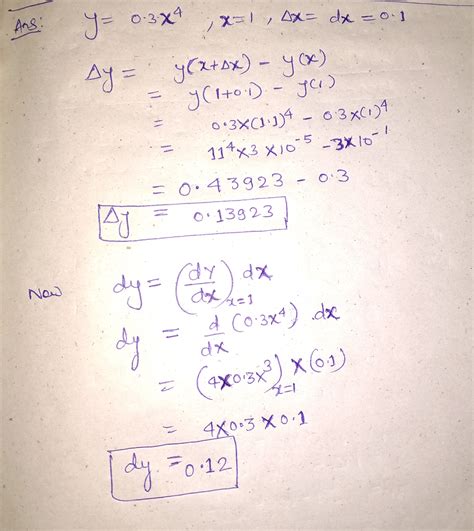 Ans: y = 0.3x⁴ , x=1 , Δx = dx = 0.1
Δy = y(x+Δx) - y(x)
= y(1+0.1) - y(1)
= 0.3×(1.1)⁴ - 0.3×(1)⁴
= 11⁴×3×10⁻⁵ - 3×10⁻¹
= 0.43923 - 0.3
Δy = 0.13923
Now dy = (dy/dx)ₓ₌₁ dx
dy = d/dx (0.3x⁴) .dx
= (4×0.3x³)ₓ₌₁ × (0.1)
= 4×0.3×0.1
dy = 0.12